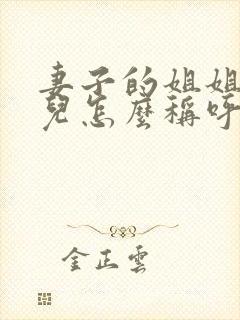 妻子的姐姐
兒怎麼稱呼
金正雲